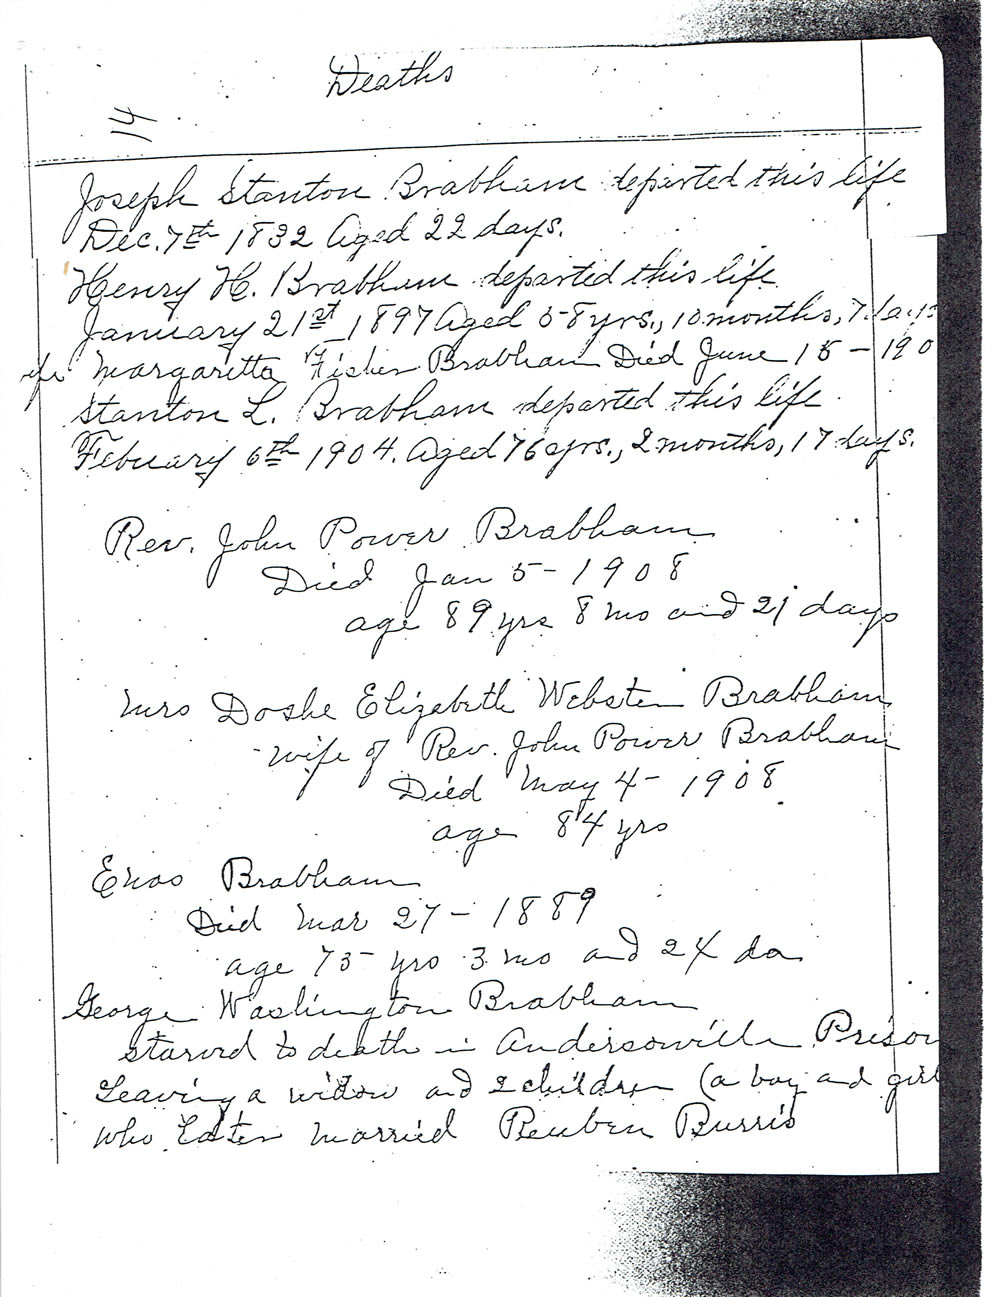 Deaths
14
Joseph Stanton Brabham departed this life
Dec. 7th 1832 Aged 22 days.
Henry H. Brabham departed this life
January 21st 1897 Aged 58 yrs., 10 months, 7 days
wife Margaretta Fisher Brabham Died June 15 - 190
Stanton L. Brabham departed this life
Febuary 6th 1904. Aged 76 yrs., 2 months, 17 days.
Rev. John Power Brabham
Died Jan 5 - 1908
age 89 yrs 8 mo and 21 days
Mrs Doshe Elizebeth Webster Brabham
wife of Rev. John Power Brabham
Died May 4 - 1908
age 84 yrs
Enos Brabham
Died Mar 27 - 1889
age 75 yrs 3 mo and 24 da
George Washington Brabham
starvd to death in Andersonville Prison
Leaving a widow and 2 children (a boy and girl
who Later married Reuben Burris